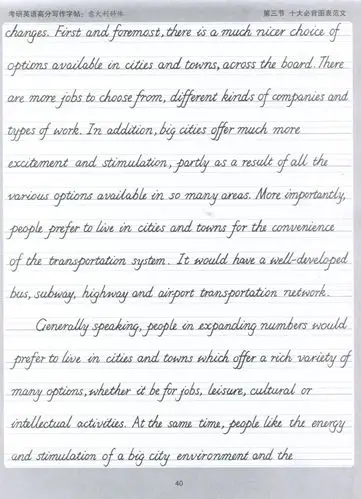 考研英语高分写作字帖：意大利斜体 第三节 十大必背图表范文
changes. First and foremost, there is a much nicer choice of
options available in cities and towns, across the board. There
are more jobs to choose from, different kinds of companies and
types of work. In addition, big cities offer much more
excitement and stimulation, partly as a result of all the
various options available in so many areas. More importantly,
people prefer to live in cities and towns for the convenience
of the transportation system. It would have a well-developed
bus, subway, highway and airport transportation network.
Generally speaking, people in expanding numbers would
prefer to live in cities and towns which offer a rich variety of
many options, whether it be for jobs, leisure, cultural or
intellectual activities. At the same time, people like the energy
and stimulation of a big city environment and the
40